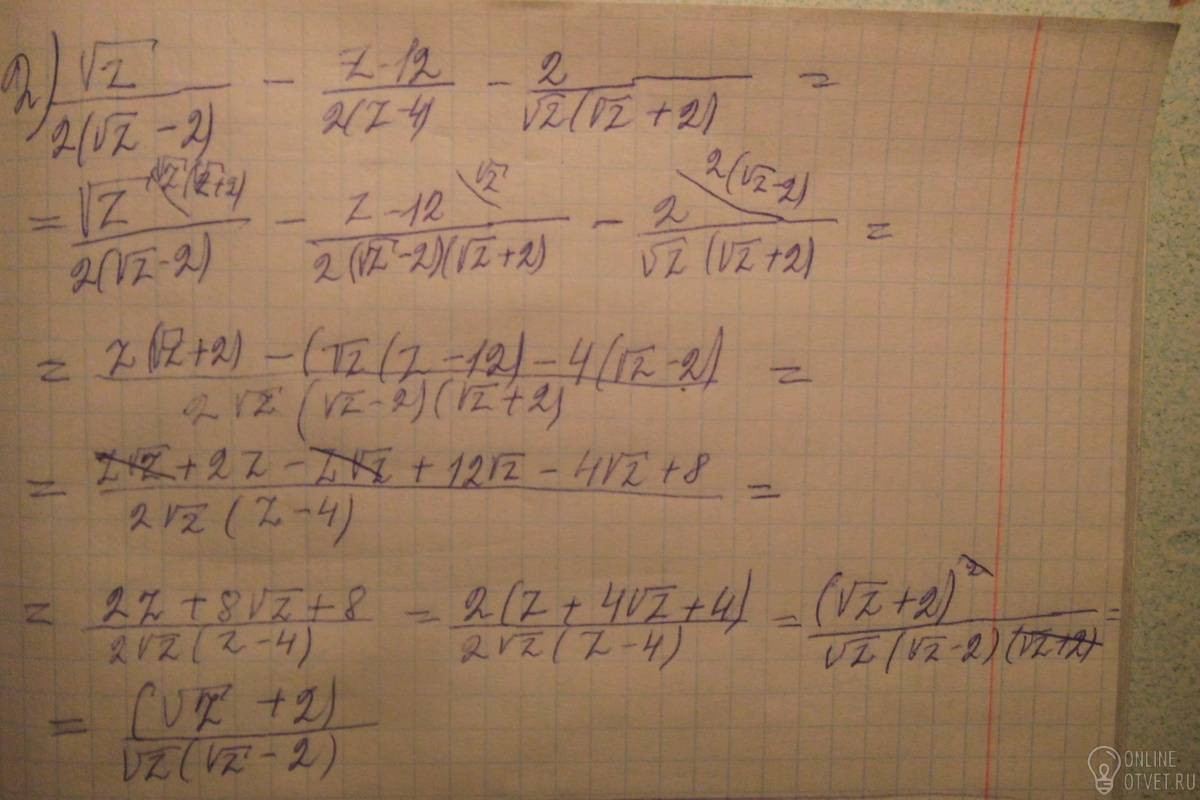 2) √z / 2(√z - 2) - z - 12 / 2(z - 4) - 2 / √z(√z + 2) =
= √z \ √z(√z+2) / 2(√z - 2) - z - 12 \ √z / 2(√z - 2)(√z + 2) - 2 \ 2(√z - 2) / √z (√z + 2) =
= z(√z + 2) - (√z(z - 12) - 4(√z - 2) / 2√z (√z - 2)(√z + 2) =
= z√z + 2z - z√z + 12√z - 4√z + 8 / 2√z (z - 4) =
= 2z + 8√z + 8 / 2√z (z - 4) = 2(z + 4√z + 4) / 2√z (z - 4) = (√z + 2)² / √z (√z - 2)(√z + 2) =
= (√z + 2) / √z (√z - 2)
ONLINE
OTVET.RU